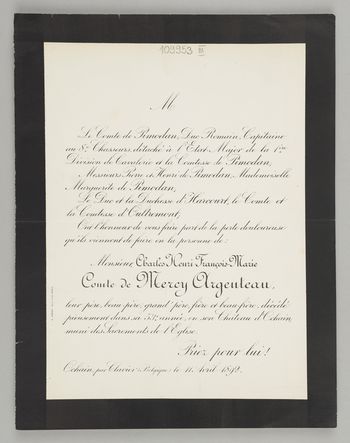 109953 III
M
Le Comte de Pimodan, Duc Romain, Capitaine
au 8e Chasseurs, détaché à l'Etat-Major de la 1ère
Division de Cavalerie et la Comtesse de Pimodan,
Messieurs Pierre et Henri de Pimodan, Mademoiselle
Marguerite de Pimodan,
Le Duc et la Duchesse d'Harcourt, le Comte et
la Comtesse d'Oultremont;
Ont l'honneur de vous faire part de la perte douloureuse
qu'ils viennent de faire en la personne de:
Monsieur Charles Henri François-Marie
Comte de Mercy Argenteau,
leur père, beau-père, grand'père, frère et beau-frère, décédé
pieusement dans sa année, en son Château d'Ochain,
muni des Sacrements de l'Eglise.
Priez pour lui!
Ochain, par Clavier (Belgique) le 11 Avril 1892.